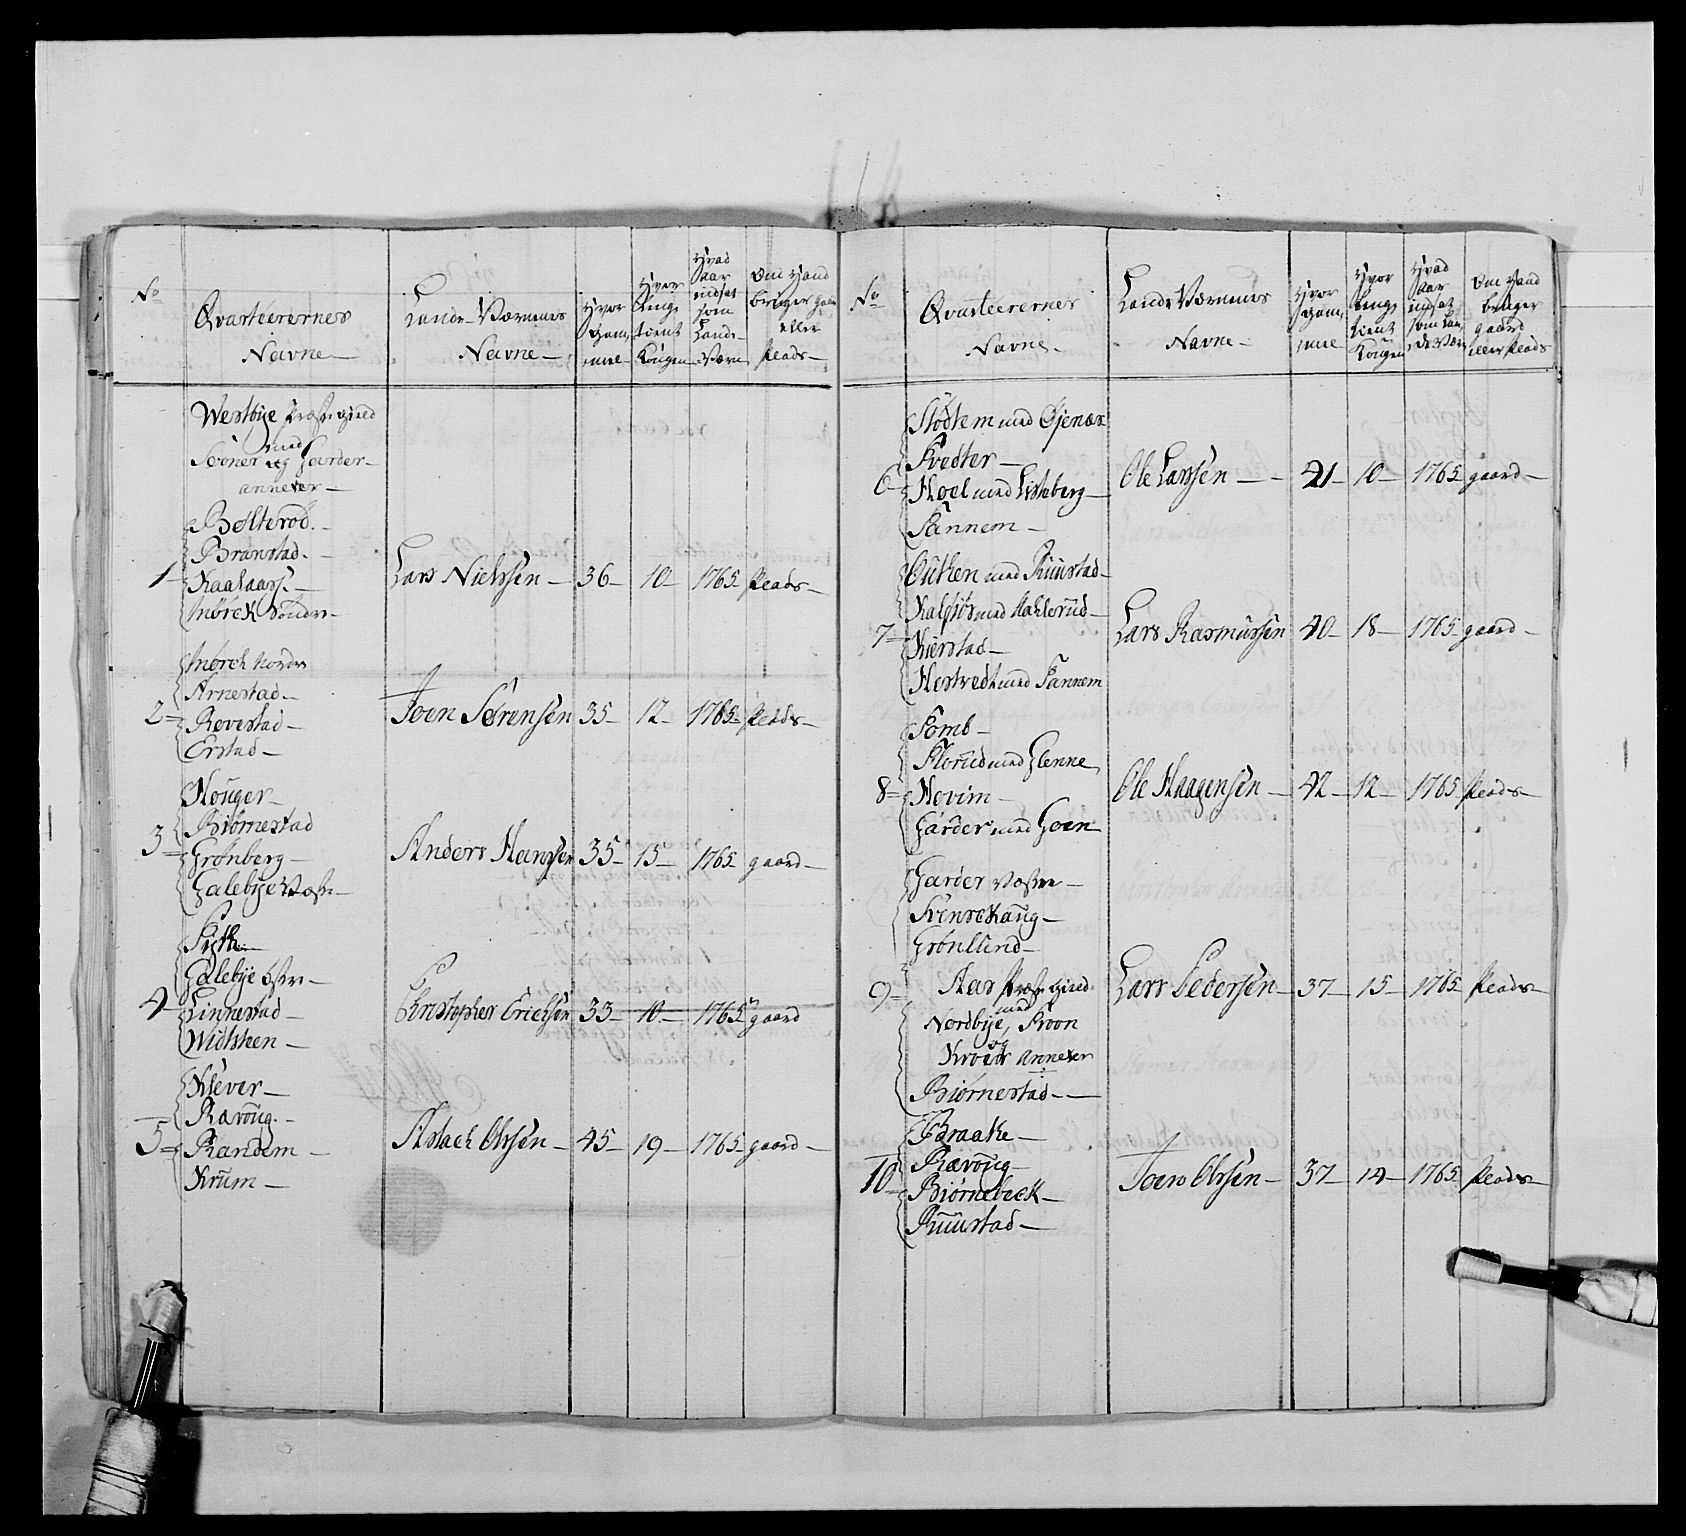 No
Qvarteerernes
Navne
Lands-Værnenes
Navne
Hvor
gam,
mel
Hvor
lenge
tient
Kongen
Hvad
Aar
indsat
som
Lands-
Værn
Om Hand
bruger gaard
eller
Plads
Westbye Præstegield
med
Soner og Garder
annexer
1
Bølterød
Branstad
Kaalaas
Mørck Søndre
Lars Nielssen 36 10 1765 Plads
2
Mørch Nordre
Arnestad
Revestad
Erstad
Joen Sørensen 35 12 1765 Plads
3
Houger
Biørnestad
Grønberg
Galebye Væstre
Anders Hanssen 35 15 1765 gaard
4
Galebye østre
Linnestad
Christopher Erichsen 33 10 1765 gaard
5
Klever
Ravoug
Randem
Krum
Aslach Olssen 45 19 1765 gaard
No
Qvarteerernes
Navne
Lands Værnenes
Navne
Hvor
gam,
mel
Hvor
lenge
tient
Kongen
Hvad
Aar
indsat
som Lan,
ds Værn
Om Hand
bruger
gaard
eller Plads
6
Tvedter
Hoel med Listeberg
Sannem
Ole Larssen 41 10 1765 gaard
7
Kierstad
Hostvedt med Sannem
Lars Rasmussen 40 18 1765 gaard
8
Tomb
Florud med Glenne
Hovim
Garder med Goen
Ole Haagensen 42 12 1765 Plads
9
Garder Vestre
Svenskoug
Grønlund
Aas Præstegield
med
Nordbye, Froon
og
Kroer annexer
Biørnestad
Lars Pedersen 37 15 1765 Plads
10
Braake
Rævoug
Biørnebeck
Ruustad
Joen Olssen 37 14 1765 Plads